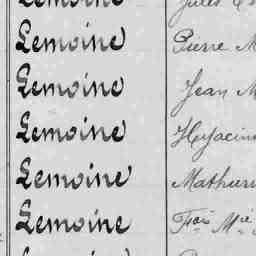 Lemoine Jules
Lemoine Pierre M
Lemoine Jean M
Lemoine Hyacin
Lemoine Mathuri
Lemoine Fçois Mie